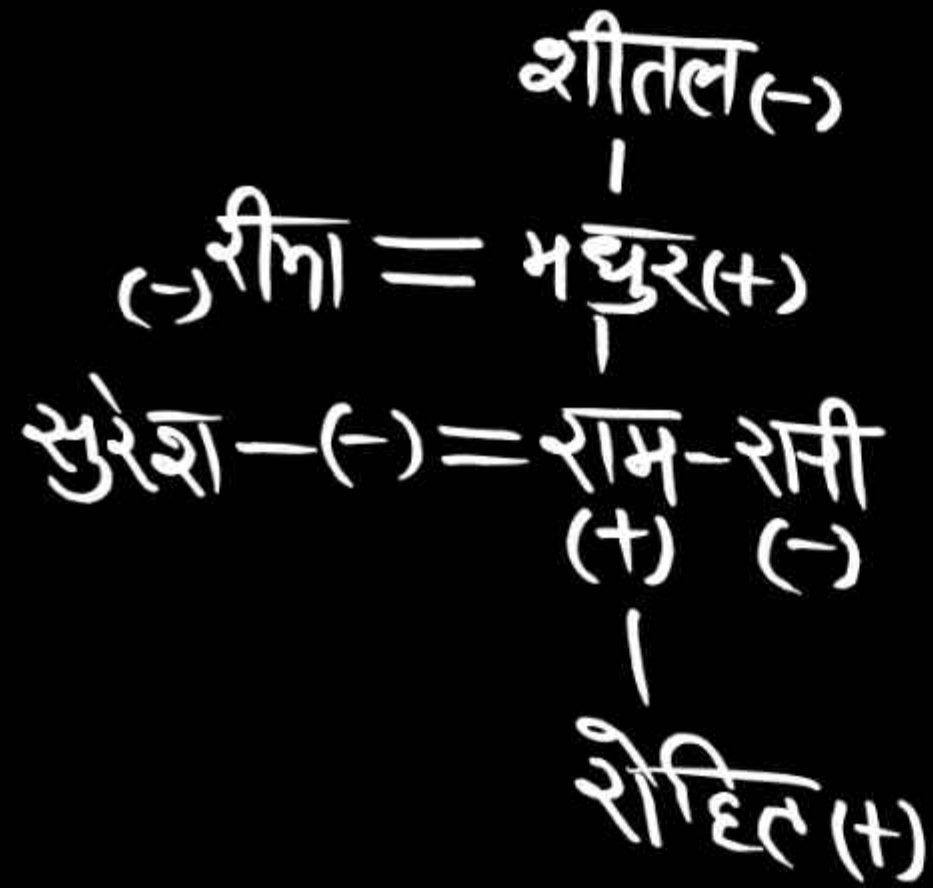 शीतल (-)
|
(-) रीमा = मधुर (+)
|
सुरेश - (-) = राम - रानी
(+) (-)
|
रोहित (+)